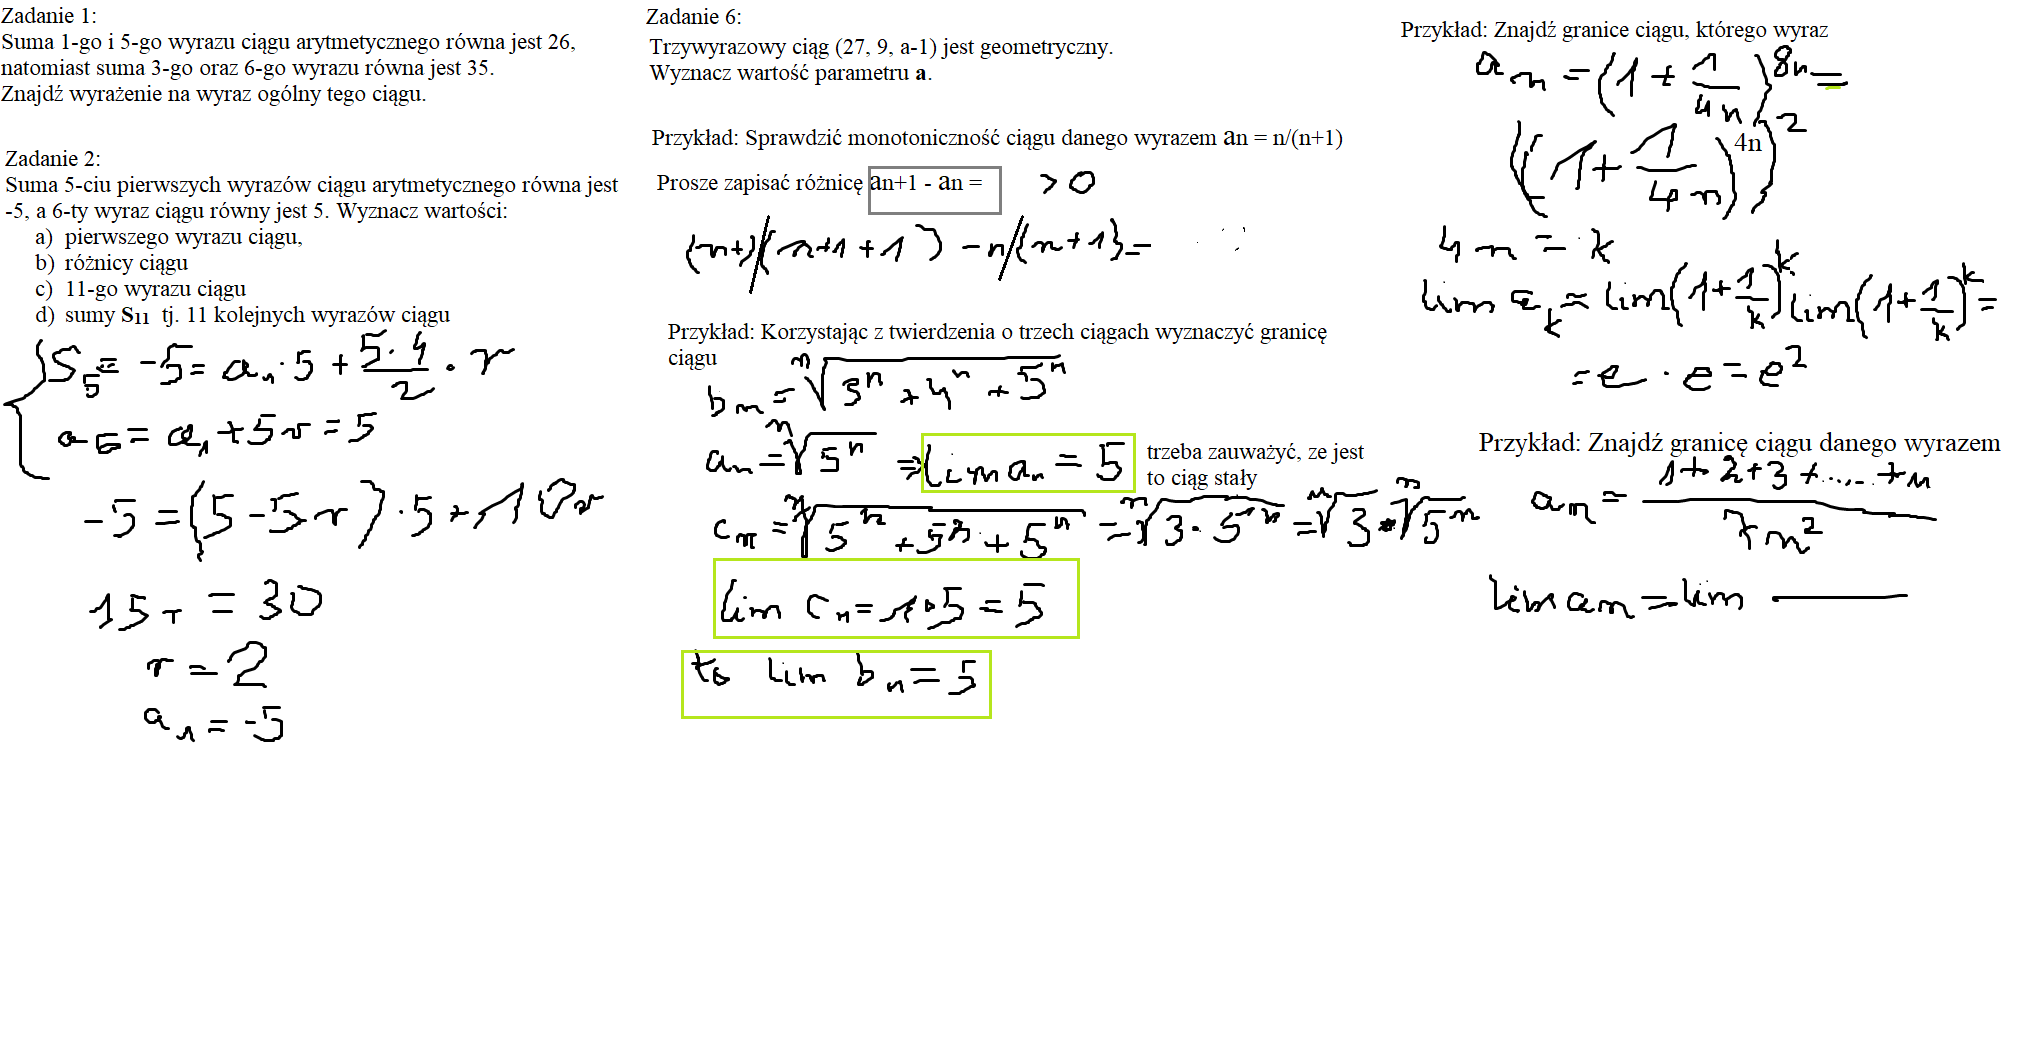 Zadanie 1:
Suma 1-go i 5-go wyrazu ciągu arytmetycznego równa jest 26,
natomiast suma 3-go oraz 6-go wyrazu równa jest 35.
Znajdź wyrażenie na wyraz ogólny tego ciągu.
Zadanie 2:
Suma 5-ciu pierwszych wyrazów ciągu arytmetycznego równa jest
-5, a 6-ty wyraz ciągu równy jest 5. Wyznacz wartości:
a) pierwszego wyrazu ciągu,
b) różnicy ciągu
c) 11-go wyrazu ciągu
d) sumy S₁₁ tj. 11 kolejnych wyrazów ciągu
S₅ = -5 = a₁ · 5 + (5·4)/2 · r
a₆ = a₁ + 5r = 5
-5 = (5 - 5r) · 5 + 10r
15r = 30
r = 2
a₁ = -5
Zadanie 6:
Trzywyrazowy ciąg (27, 9, a-1) jest geometryczny.
Wyznacz wartość parametru a.
Przykład: Sprawdzić monotoniczność ciągu danego wyrazem an = n/(n+1)
Prosze zapisać różnicę an+1 - an = > 0
(n+1)/(n+1+1) - n/(n+1) =
Przykład: Korzystając z twierdzenia o trzech ciągach wyznaczyć granicę
ciągu
bₙ = ⁿ√(3ⁿ + 4ⁿ + 5ⁿ)
aₙ = ⁿ√(5ⁿ) ⇒ lim aₙ = 5
trzeba zauważyć, ze jest
to ciąg stały
cₙ = ⁿ√(5ⁿ + 5ⁿ + 5ⁿ) = ⁿ√(3 · 5ⁿ) = ⁿ√3 · ⁿ√(5ⁿ)
lim cₙ = 1 · 5 = 5
to lim bₙ = 5
Przykład: Znajdź granice ciągu, którego wyraz
aₙ = (1 + 1/(4n))^(8n) =
((1 + 1/(4n))^(4n))^2
4n = k
lim aₖ = lim(1 + 1/k)^k lim(1 + 1/k)^k =
= e · e = e²
Przykład: Znajdź granicę ciągu danego wyrazem
aₙ = (1 + 2 + 3 + ..... + n)/(7n²)
lim aₙ = lim